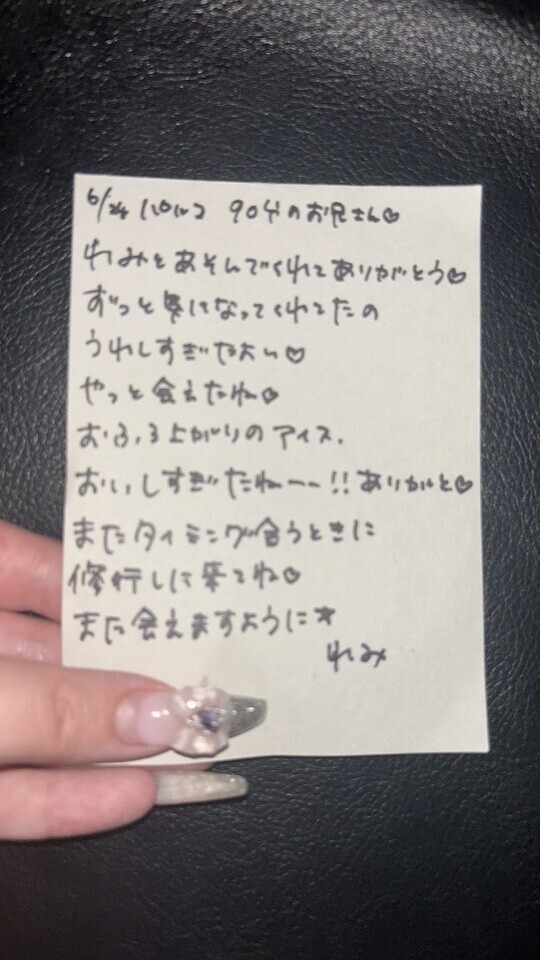 6/24 パルコ 90分のお兄さん♡
れみとあそんでくれてありがとう♡
ずっと気になってくれてたの
うれしすぎたよい♡
やっと会えたね♡
おふろ上がりのアイス.
おいしすぎたねーー!! ありがと♡
またタイミング合うときに
修行しに来てね♡
また会えますように☆
れみ